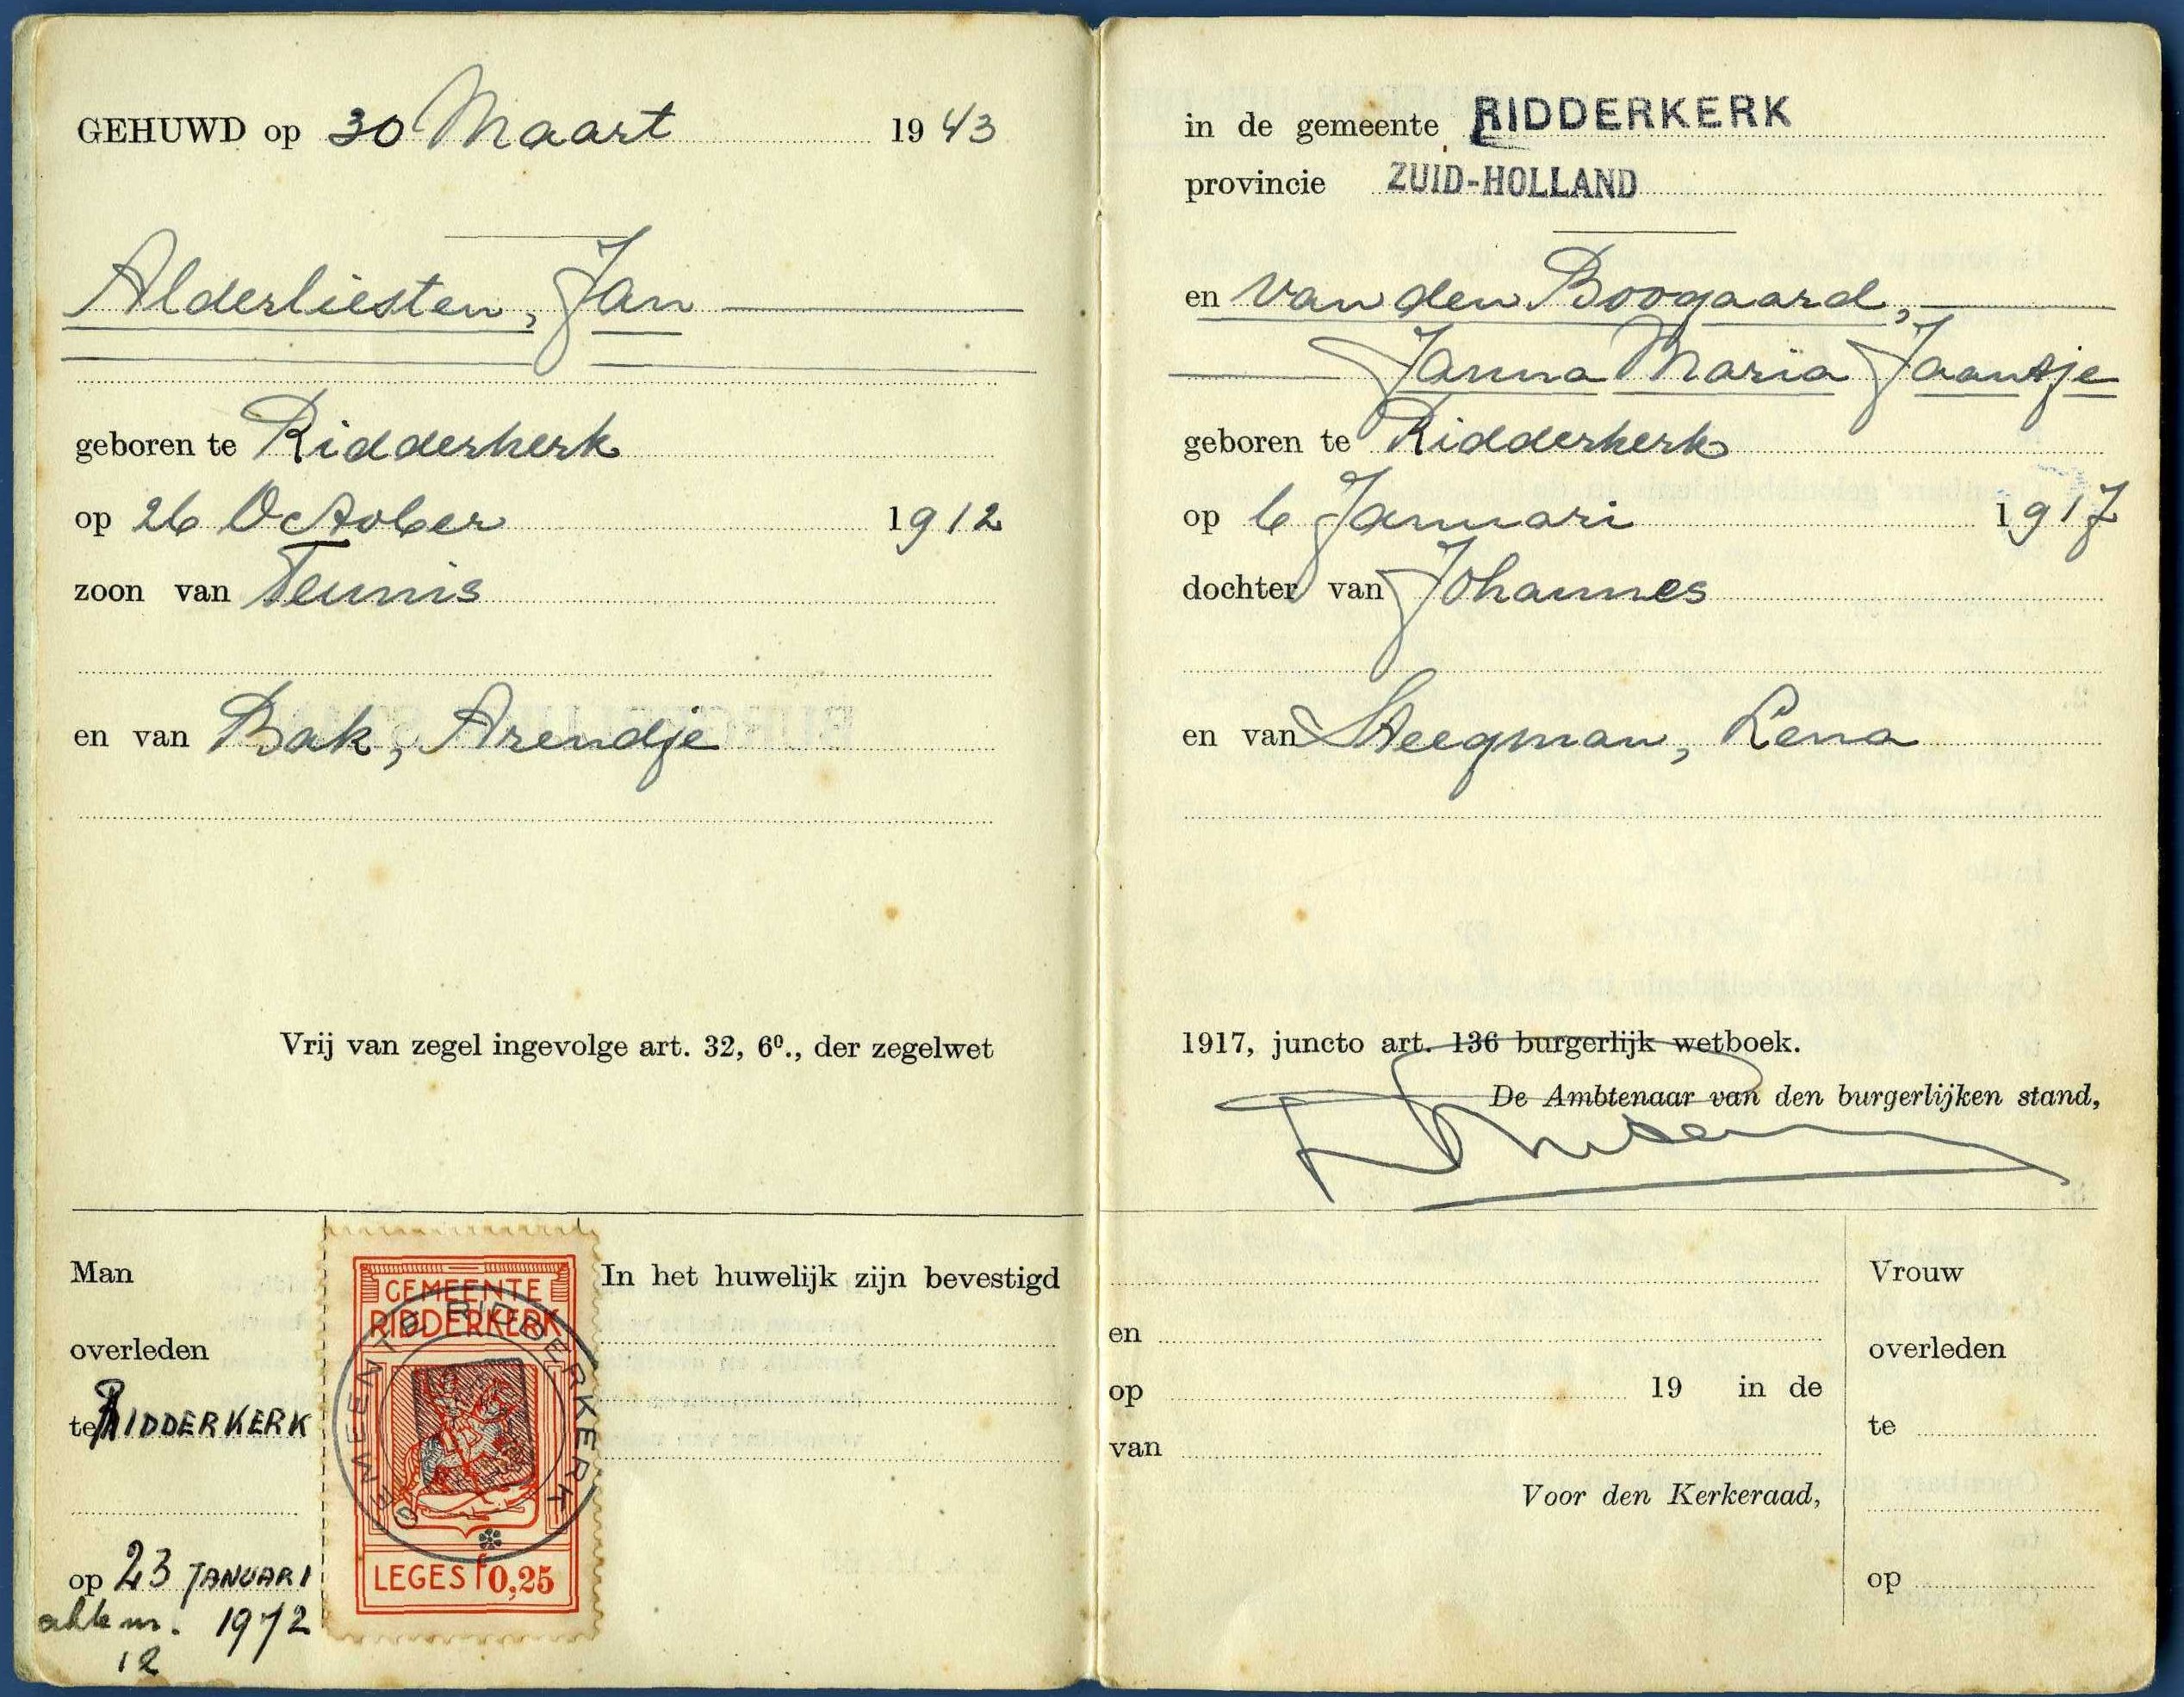 GEHUWD op 30 Maart 1943
Alderliesten, Jan
geboren te Ridderkerk
op 26 October 1912
zoon van Teunis
en van Bak, Arendje
Vrij van zegel ingevolge art. 32, 6⁰., der zegelwet
Man
overleden
te RIDDERKERK
op 23 JANUARI
akte nr. 1972
12
GEMEENTE
RIDDERKERK
GEMEENTE RIDDERKERK
LEGES f 0,25
In het huwelijk zijn bevestigd
in de gemeente RIDDERKERK
provincie ZUID-HOLLAND
en van den Boogaard,
Janna Maria Jaantje
geboren te Ridderkerk
op 6 Januari 1917
dochter van Johannes
en van Steegman, Lena
1917, juncto art. 136 burgerlijk wetboek.
De Ambtenaar van den burgerlijken stand,
en
op 19 in de
van
Voor den Kerkeraad,
Vrouw
overleden
te
op